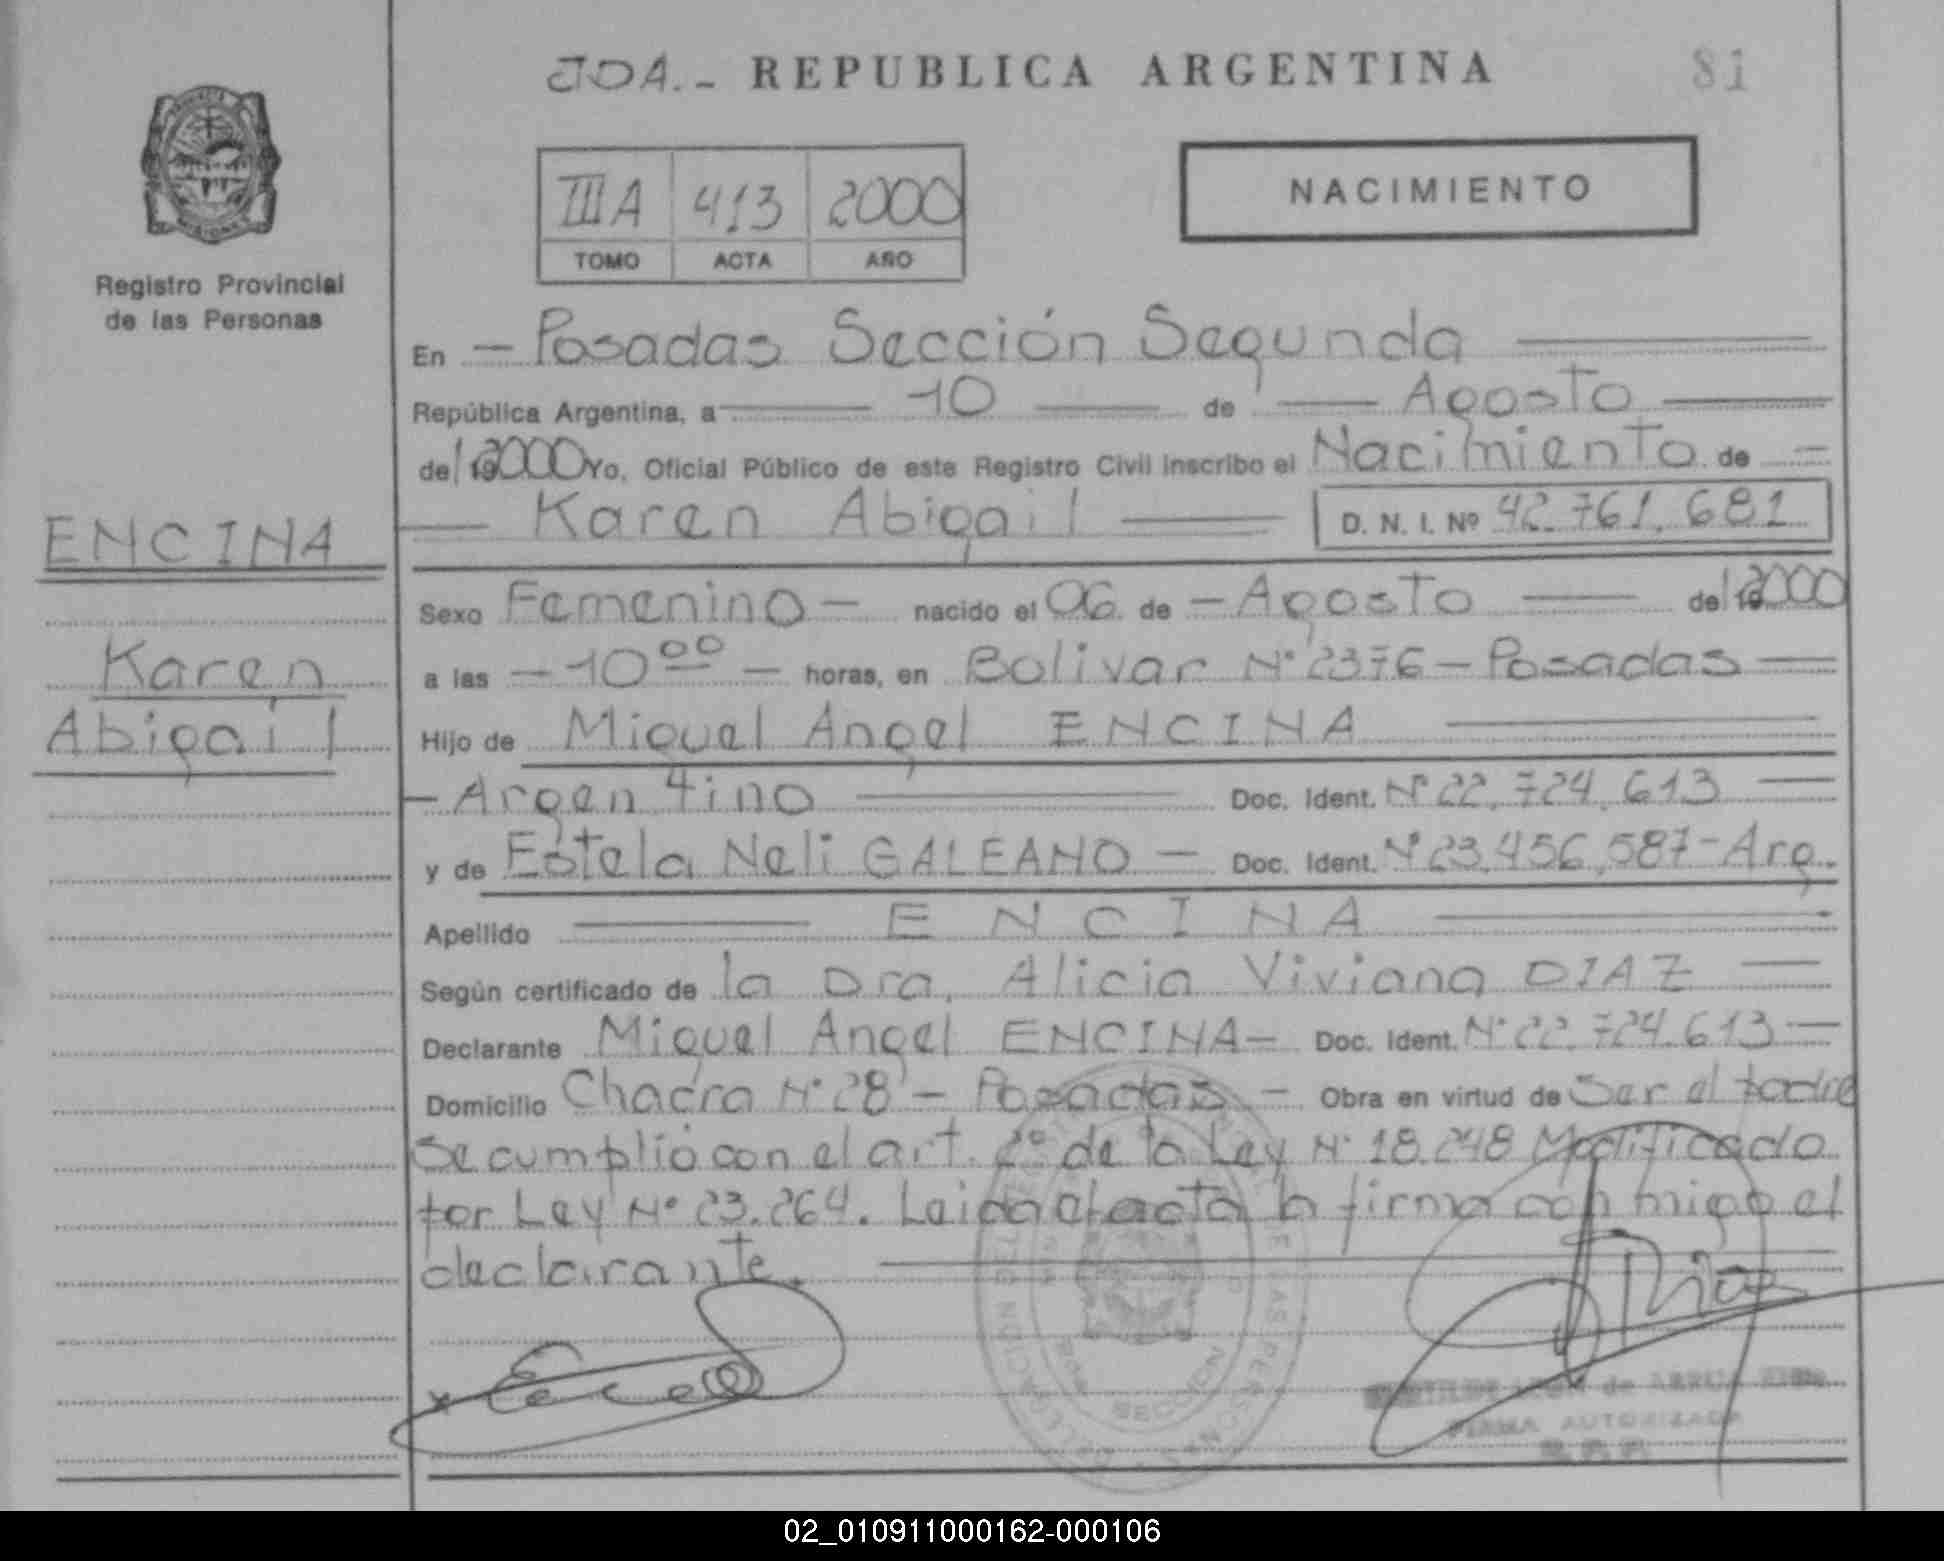 JDA.- REPUBLICA ARGENTINA 81
IIIA 413 2000
TOMO ACTA AÑO
NACIMIENTO
Registro Provincial
de las Personas
En - Posadas Sección Segunda
República Argentina, a 10 de Agosto
de 2000 Yo, Oficial Público de este Registro Civil inscribo el Nacimiento de -
Karen Abigail D. N. I. Nº 42.761.681
ENCINA
Karen
Abigail
Sexo Femenino - nacido el 06 de - Agosto de 2000
a las - 10 00 - horas, en Bolivar Nº 2376 - Posadas
Hijo de Miguel Angel ENCINA
- Argentino Doc. Ident. Nº 22.724.613
y de Estela Neli GALEANO - Doc. Ident. Nº 23.456.587 - Arg.
Apellido ENCINA
Según certificado de la Dra. Alicia Viviana DIAZ
Declarante Miguel Angel ENCINA - Doc. Ident. Nº 22.724.613
Domicilio Chacra Nº 28 - Posadas - Obra en virtud de Ser el padre
Se cumplió con el art. 2º de la Ley Nº 18.248 Modificado
por Ley Nº 23.264. Leida el acta la firma con migo el
declarante.
FIRMA AUTORIZADA
02_010911000162-000106